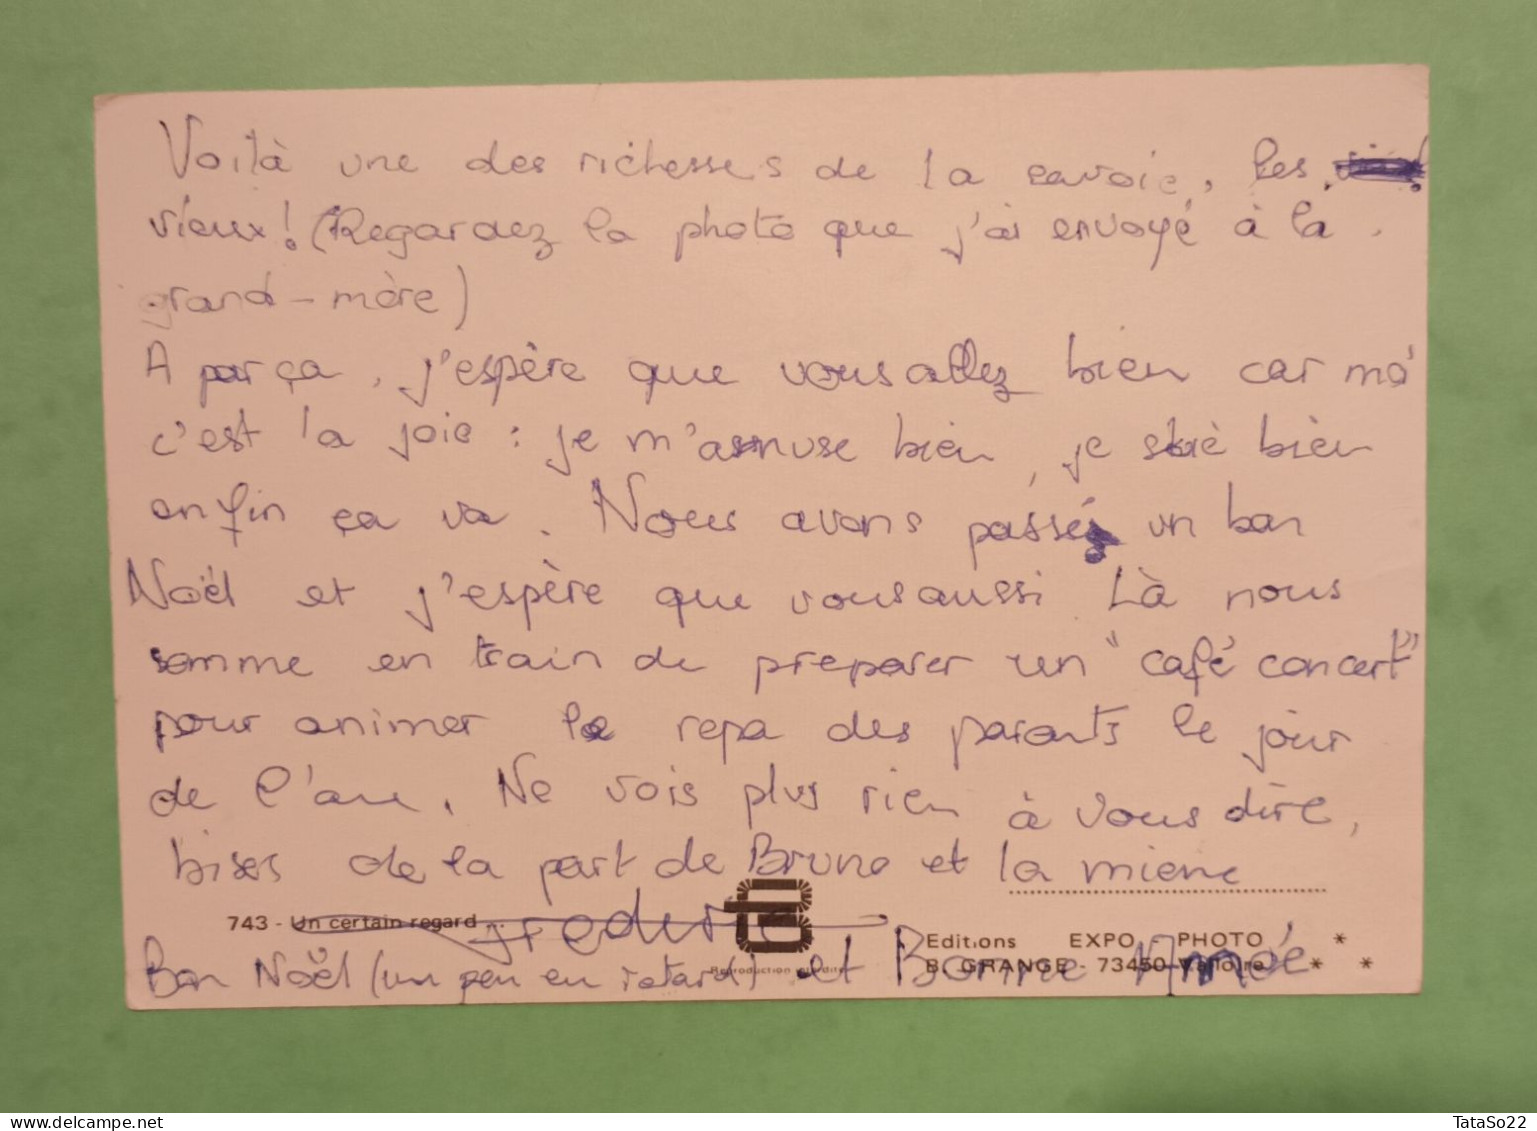 Voilà une des richesses de la savoie, les
vieux! (Regardez la photo que j'ai envoyé à la
grand-mère)
A par ça, j'espère que vous allez bien car mo
c'est la joie : je m'amuse bien, je skie bien
enfin ça va. Nous avons passé un bon
Noël et j'espère que vous aussi Là nous
somme en train de preparer un "café concert"
pour animer le repa des parents le jour
de l'an. Ne vois plus rien à vous dire,
bises de la part de Bruno et la miene
743 - Un certain regard
Editions EXPO - PHOTO *
B. GRANGE - 73450 Valloire * *
Reproduction interdite
Bon Noël (un peu en retard) et Bonne Année
TataSo22